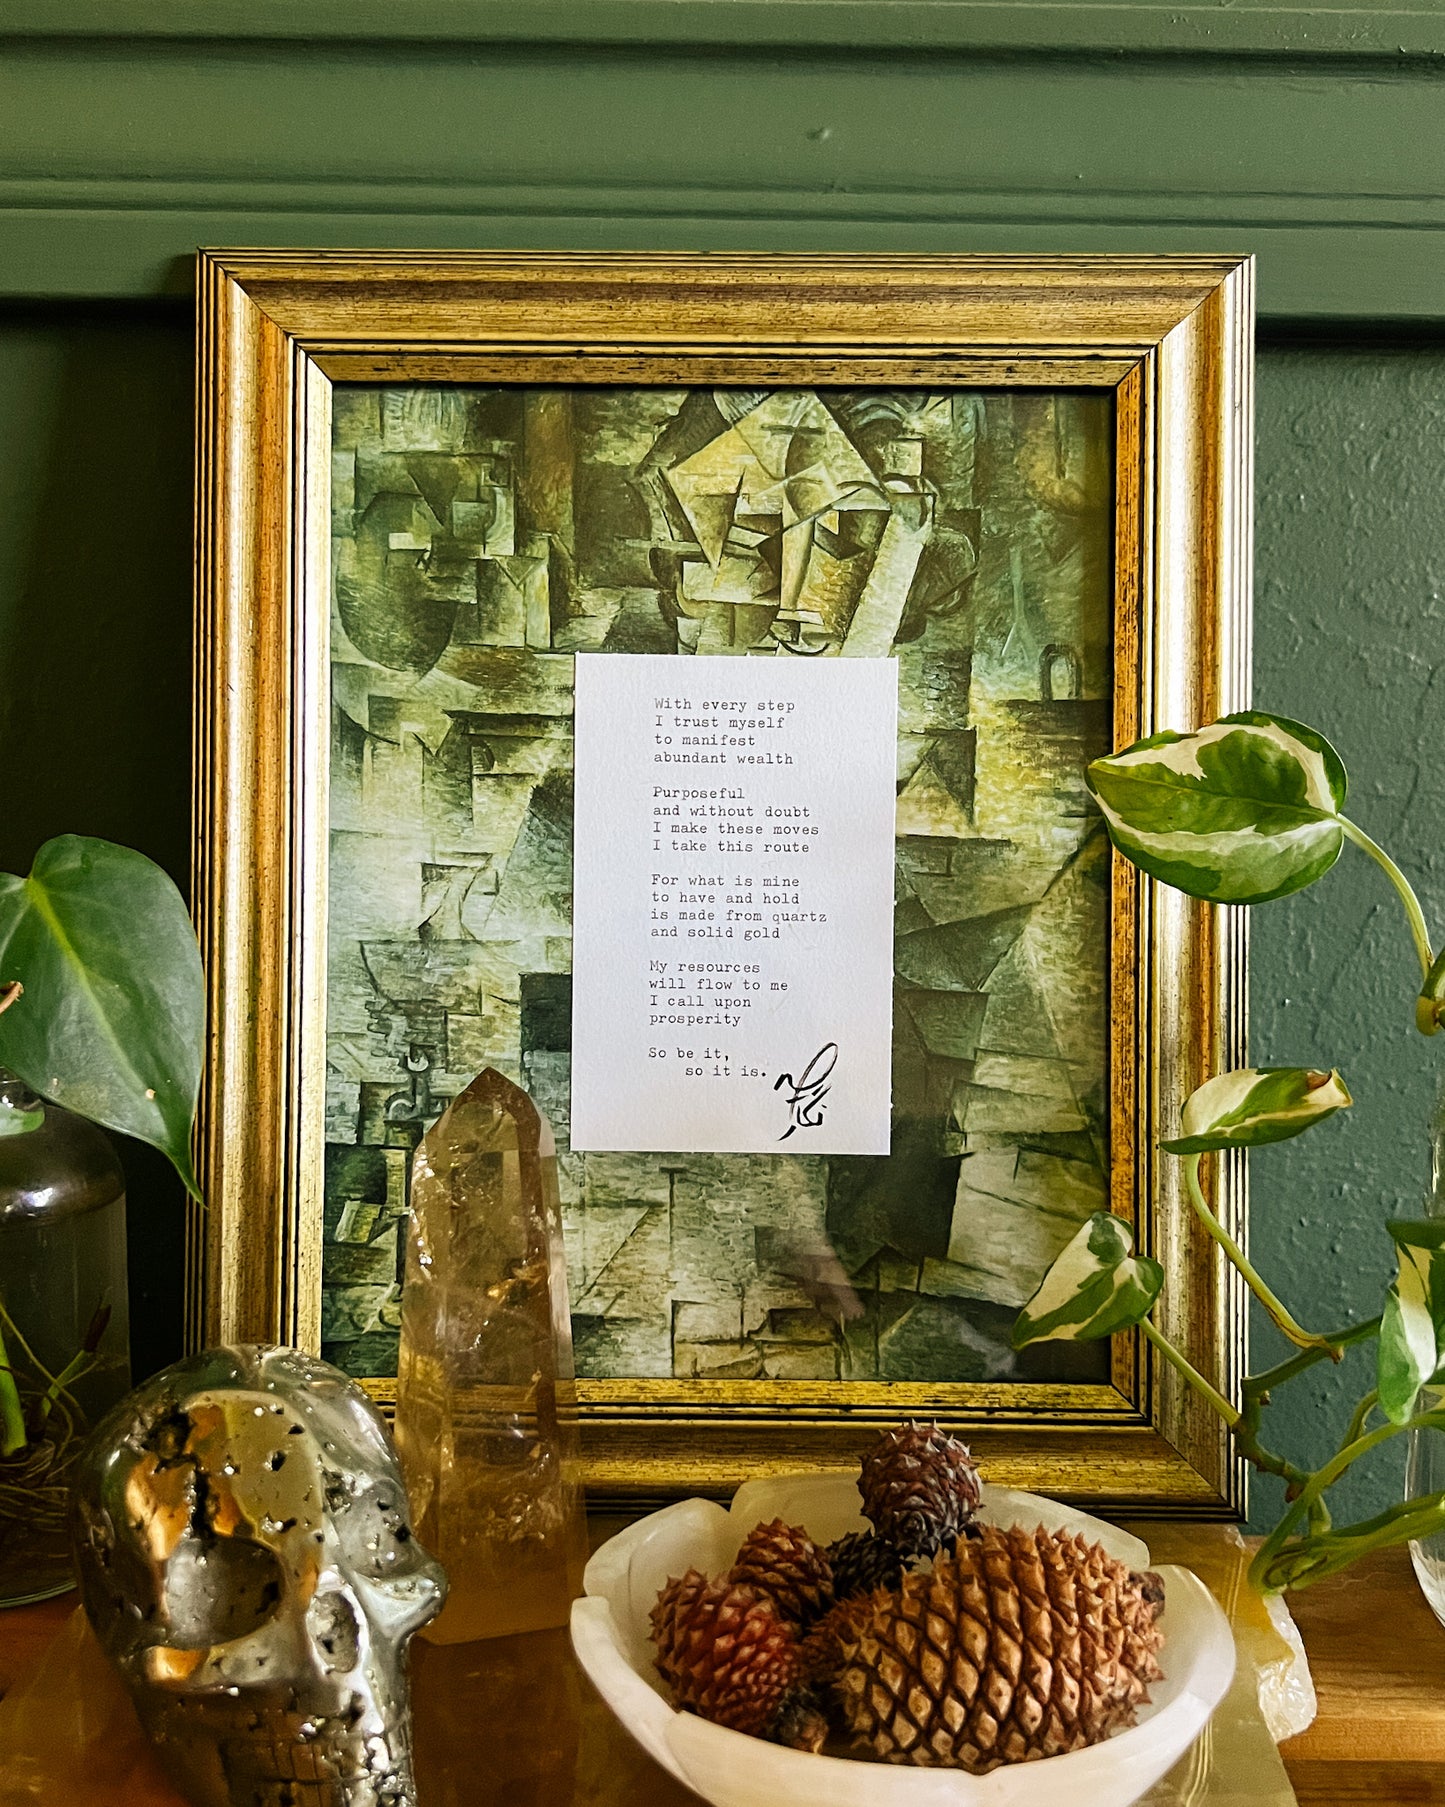 With every step
I trust myself
to manifest
abundant wealth
Purposeful
and without doubt
I make these moves
I take this route
For what is mine
to have and hold
is made from quartz
and solid gold
My resources
will flow to me
I call upon
prosperity
So be it,
so it is.